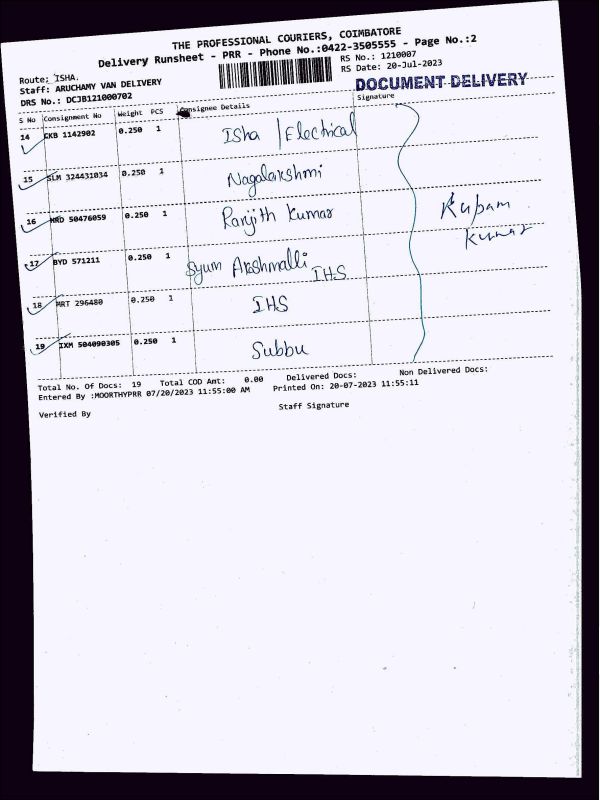 THE PROFESSIONAL COURIERS, COIMBATORE
Delivery Runsheet - PRR - Phone No.:0422-3505555 - Page No.:2
Route: ISHA.
RS No.: 1210007
Staff: ARUCHAMY VAN DELIVERY
RS Date: 20-Jul-2023
DRS No.: DCJB121000702
DOCUMENT DELIVERY
S No Consignment No Weight PCS Consignee Details Signature
14 CKB 1142902 0.250 1 Isha | Electrical
15 SLM 324431034 0.250 1 Nagalakshmi
16 HRD 50476059 0.250 1 Ranjith Kumar
Rupam
Kumar
17 BYD 571211 0.250 1 Syum IHS
18 MRT 296480 0.250 1 IHS
19 IXM 504090305 0.250 1 Subbu
Total No. Of Docs: 19 Total COD Amt: 0.00 Delivered Docs: Non Delivered Docs:
Entered By :MOORTHYPRR 07/20/2023 11:55:00 AM Printed On: 20-07-2023 11:55:11
Verified By Staff Signature